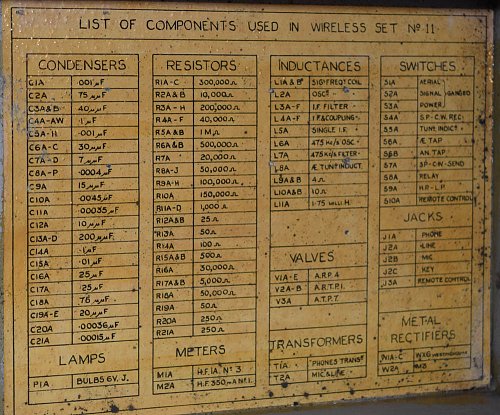 LIST OF COMPONENTS USED IN WIRELESS SET Nº 11
CONDENSERS
C1A .001μF
C2A 75μμF
C3A&B 40μμF
C4A-AW .1μF
C5A-H .001μF
C6A-C 30μμF
C7A-D 7μμF
C8A-P .0004μF
C9A 15μμF
C10A .0045μF
C11A .00035μF
C12A 10μμF
C13A-D 200μμF
C14A .1μF
C15A .01μF
C16A 25μF
C17A .125μF
C18A 76μμF
C19A-E 20μμF
C20A .00036μF
C21A .00015μF
LAMPS
P1A BULBS 6V. J.
RESISTORS
R1A-C 300,000Ω
R2A&B 10,000Ω
R3A-H 200,000Ω
R4A-F 40,000Ω
R5A&B 1MΩ
R6A&B 500,000Ω
R7A 20,000Ω
R8A-J 50,000Ω
R9A-H 100,000Ω
R10A 150,000Ω
R11A-D 1,000Ω
R12A&B 25Ω
R13A 50Ω
R14A 100Ω
R15A&B 500Ω
R16A 30,000Ω
R17A&B 5,000Ω
R18A 50,000Ω
R19A 50Ω
R20A 250Ω
R21A 250Ω
METERS
M1A H.F. 1A. Nº 3
M2A H.F. 350mA Nº 1.
INDUCTANCES
L1A&B SIG. FREQ. COIL
L2A OSC.
L3A-F I.F. FILTER
L4A-F I.F. & COUPLING
L5A SINGLE I.F.
L6A 475 Kc/s OSC.
L7A 475 Kc/s FILTER
L8A Æ TUNE INDUCT.
L9A&B 4Ω
L10A&B 10Ω
L11A 1·75 H.
VALVES
V1A-E A.R.P. 4
V2A-B A.R.T.P.1.
V3A A.T.P. 7.
TRANSFORMERS
T1A PHONES TRANSF
T2A MIC & LINE
SWITCHES
S1A AERIAL
S2A SIGNAL GANGED
S3A POWER
S4A S.P.-C.W. REC.
S5A TUNE INDICT
S6A Æ TAP
S6B AN. TAP
S7A S.P.-CW-SEND
S8A RELAY
S9A H.P.-L.P.
S10A REMOTE CONTROL
JACKS
J1A PHONE
J2A LINE
J2B MIC
J2C KEY
J3A REMOTE CONTROL
METAL
RECTIFIERS
W1A-C WX6 WESTINGHOUSE
W2A